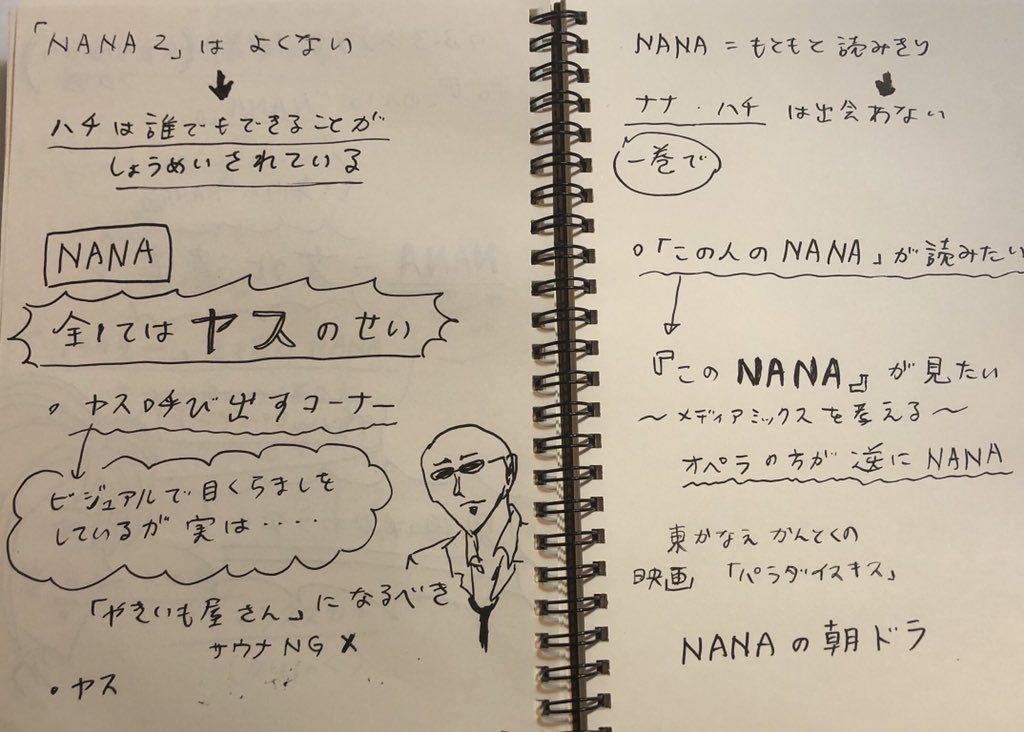 「NANA2」は よくない
ハチは誰でもできることが
しょうめいされている
NANA
全てはヤスのせい
・ヤス呼び出すコーナー
ビジュアルで目くらましを
しているが 実は‥‥
「やきいも屋さん」になるべき
サウナNG ×
・ヤス
NANA = もともと読みきり
ナナ・ハチ は出会わない
一巻で
○「この人の NANA」が読みたい
『この NANA』が見たい
〜メディアミックスを考える〜
オペラの方が逆にNANA
東かなえ かんとくの
映画 「パラダイスキス」
NANAの朝ドラ